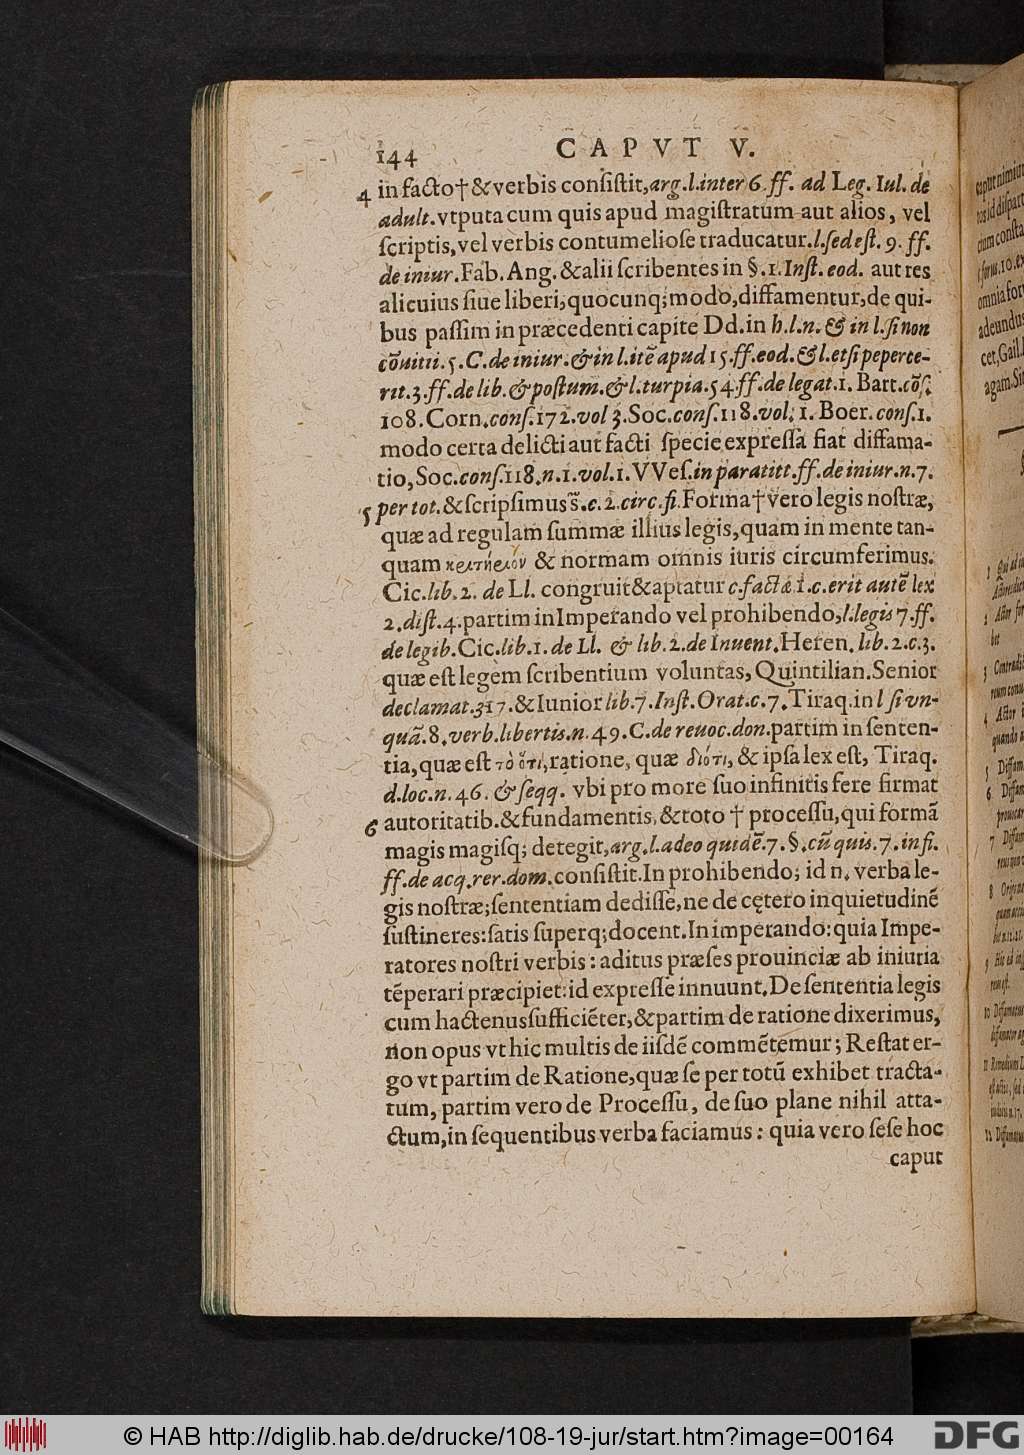 144 CAPVT V.
4 in facto† & verbis conſiſtit, arg. l. inter 6. ff. ad Leg. Iul. de
adult. vtputa cum quis apud magiſtratum aut alios, vel
ſcriptis, vel verbis contumelioſe traducatur. l. ſed eſt. 9. ff.
de iniur. Fab. Ang. & alii ſcribentes in §. 1. Inſt. eod. aut res
alicuius ſiue liberi, quocunq; modo, diffamentur, de qui-
bus paſſim in præcedenti capite Dd. in h. l. n. & in l. ſi non
cõuitii. 5. C. de iniur. & in l. itẽ apud 15. ff. eod. & l. etſi peperce-
rit. 3. ff. de lib. & poſtum. & l. turpia. 54. ff. de legat. 1. Bart. cõſ.
108. Corn. conſ. 172. vol 3. Soc. conſ. 118. vol. 1. Boer. conſ. 1.
modo certa delicti aut facti ſpecie expreſſa fiat diffama-
tio, Soc. conſ. 118. n. 1. vol. 1. VVeſ. in paratitt. ff. de iniur. n. 7.
5 per tot. & ſcripſimus s̃. c. 2. circ. fi. Forma† vero legis noſtræ,
quæ ad regulam ſummæ illius legis, quam in mente tan-
quam κριτήριον & normam omnis iuris circumferimus.
Cic. lib. 2. de Ll. congruit & aptatur c. factæ 1. c. erit autẽ lex
2. diſt. 4. partim in Imperando vel prohibendo, l. legis 7. ff.
de legib. Cic. lib. 1. de Ll. & lib. 2. de Inuent. Heren. lib. 2. c. 3.
quæ eſt legem ſcribentium voluntas, Quintilian. Senior
declamat. 317. & Iunior lib. 7. Inſt. Orat. c. 7. Tiraq. in l ſi vn-
quã. 8. verb. libertis. n. 49. C. de reuoc. don. partim in ſenten-
tia, quæ eſt τὸ ὅτι, ratione, quæ διότι, & ipſa lex eſt, Tiraq.
d. loc. n. 46. & ſeqq. vbi pro more ſuo infinitis fere firmat
6 autoritatib. & fundamentis, & toto † proceſſu, qui formã
magis magiſq; detegit, arg. l. adeo quidẽ. 7. §. cũ quis. 7. in fi.
ff. de acq. rer. dom. conſiſtit. In prohibendo; id n. verba le-
gis noſtræ; ſententiam dediſſe, ne de cętero inquietudinẽ
ſuſtineres: ſatis ſuperq; docent. In imperando: quia Impe-
ratores noſtri verbis: aditus præſes prouinciæ ab iniuria
tẽperari præcipiet: id expreſſe innuunt. De ſententia legis
cum hactenus ſufficiẽter, & partim de ratione dixerimus,
non opus vt hic multis de iiſdẽ commẽtemur; Reſtat er-
go vt partim de Ratione, quæ ſe per totũ exhibet tracta-
tum, partim vero de Proceſſu, de ſuo plane nihil atta-
ctum, in ſequentibus verba faciamus: quia vero ſeſe hoc
caput
© HAB http://diglib.hab.de/drucke/108-19-jur/start.htm?image=00164
DFG